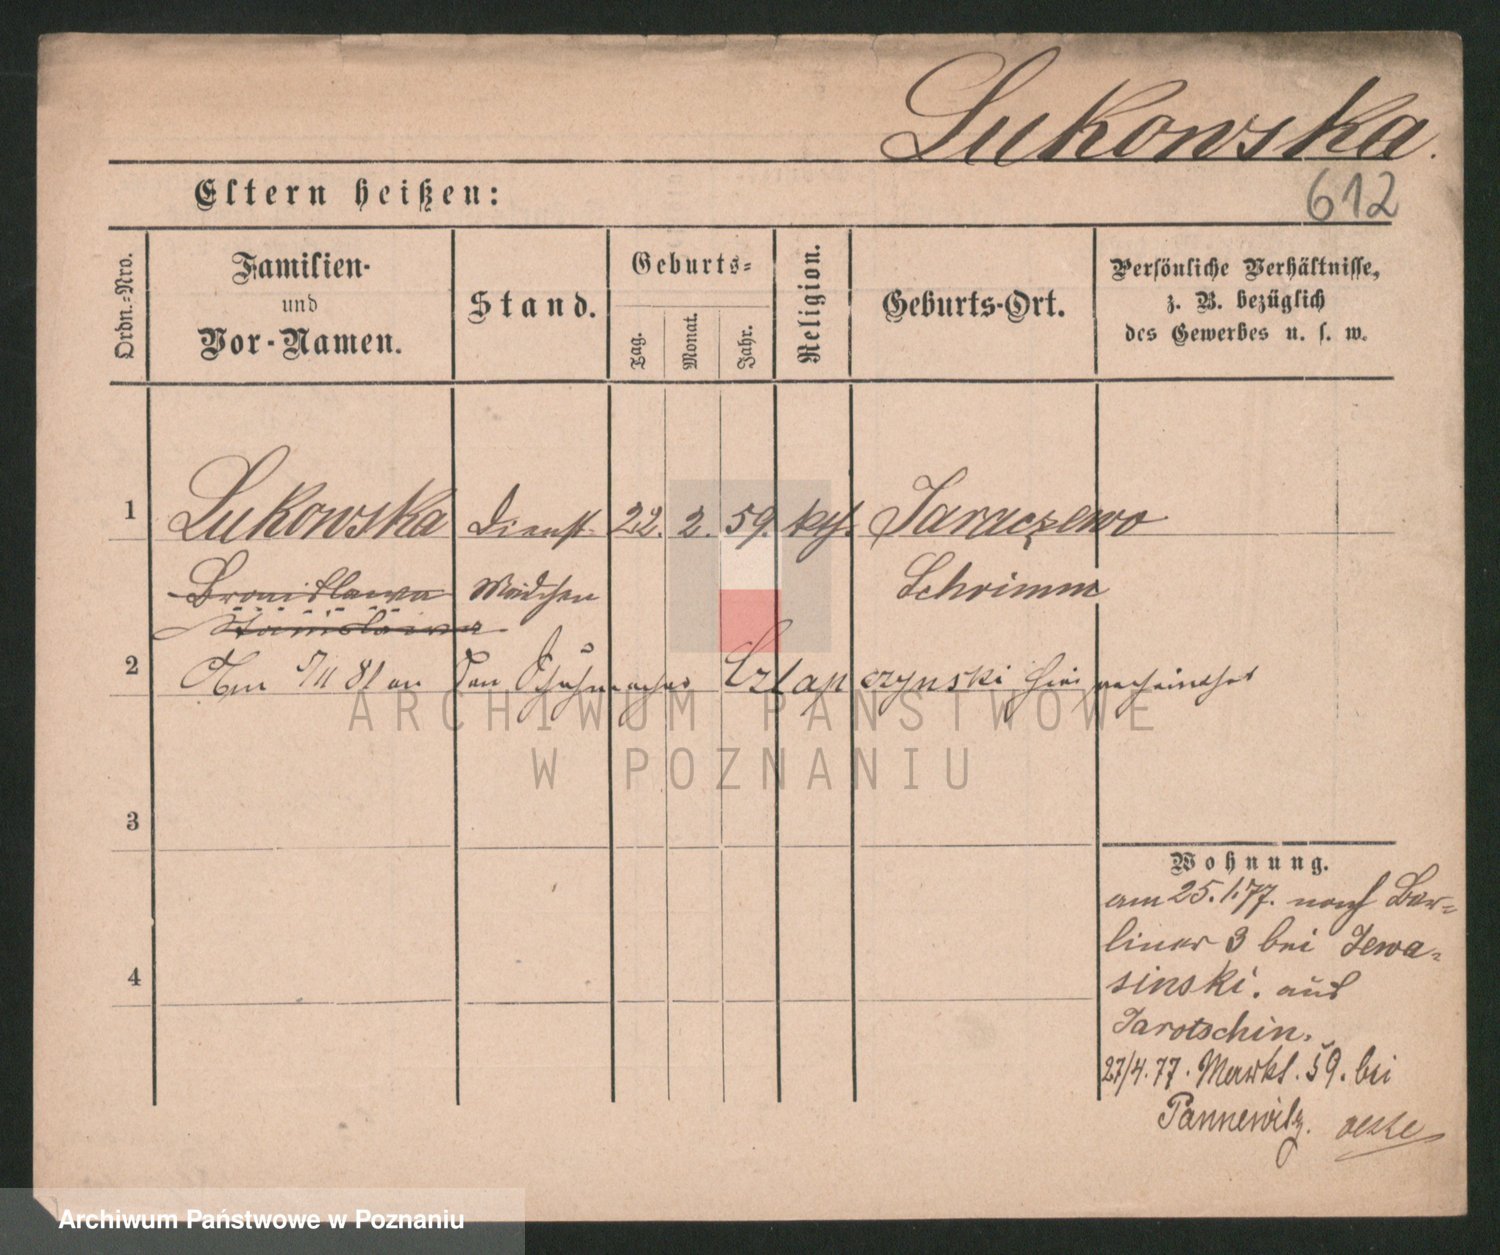 Lukowska.
612
Eltern heißen:
Ordn.-Nro.
Familien-
und
Vor-Namen.
Stand.
Geburts-
Tag.
Monat.
Jahr.
Religion.
Geburts-Ort.
Persönliche Verhältnisse,
z. B. bezüglich
des Gewerbes u. s. w.
1 Lukowska Dienst- 22. 2. 59. kth. Jaraczewo
Bronislawa Mädchen Schrimm
Stanislawa
2 Am 5/11 81 an den Schuhmacher Szlapczynski hier verheirathet
3
4
Wohnung.
am 25.1.77. nach Ber-
liner 3 bei Jewa-
sinski. aus
Jarotschin.
27/4.77. Markt. 59. bei
Pannewitz.
ARCHIWUM PAŃSTWOWE
W POZNANIU
Archiwum Państwowe w Poznaniu